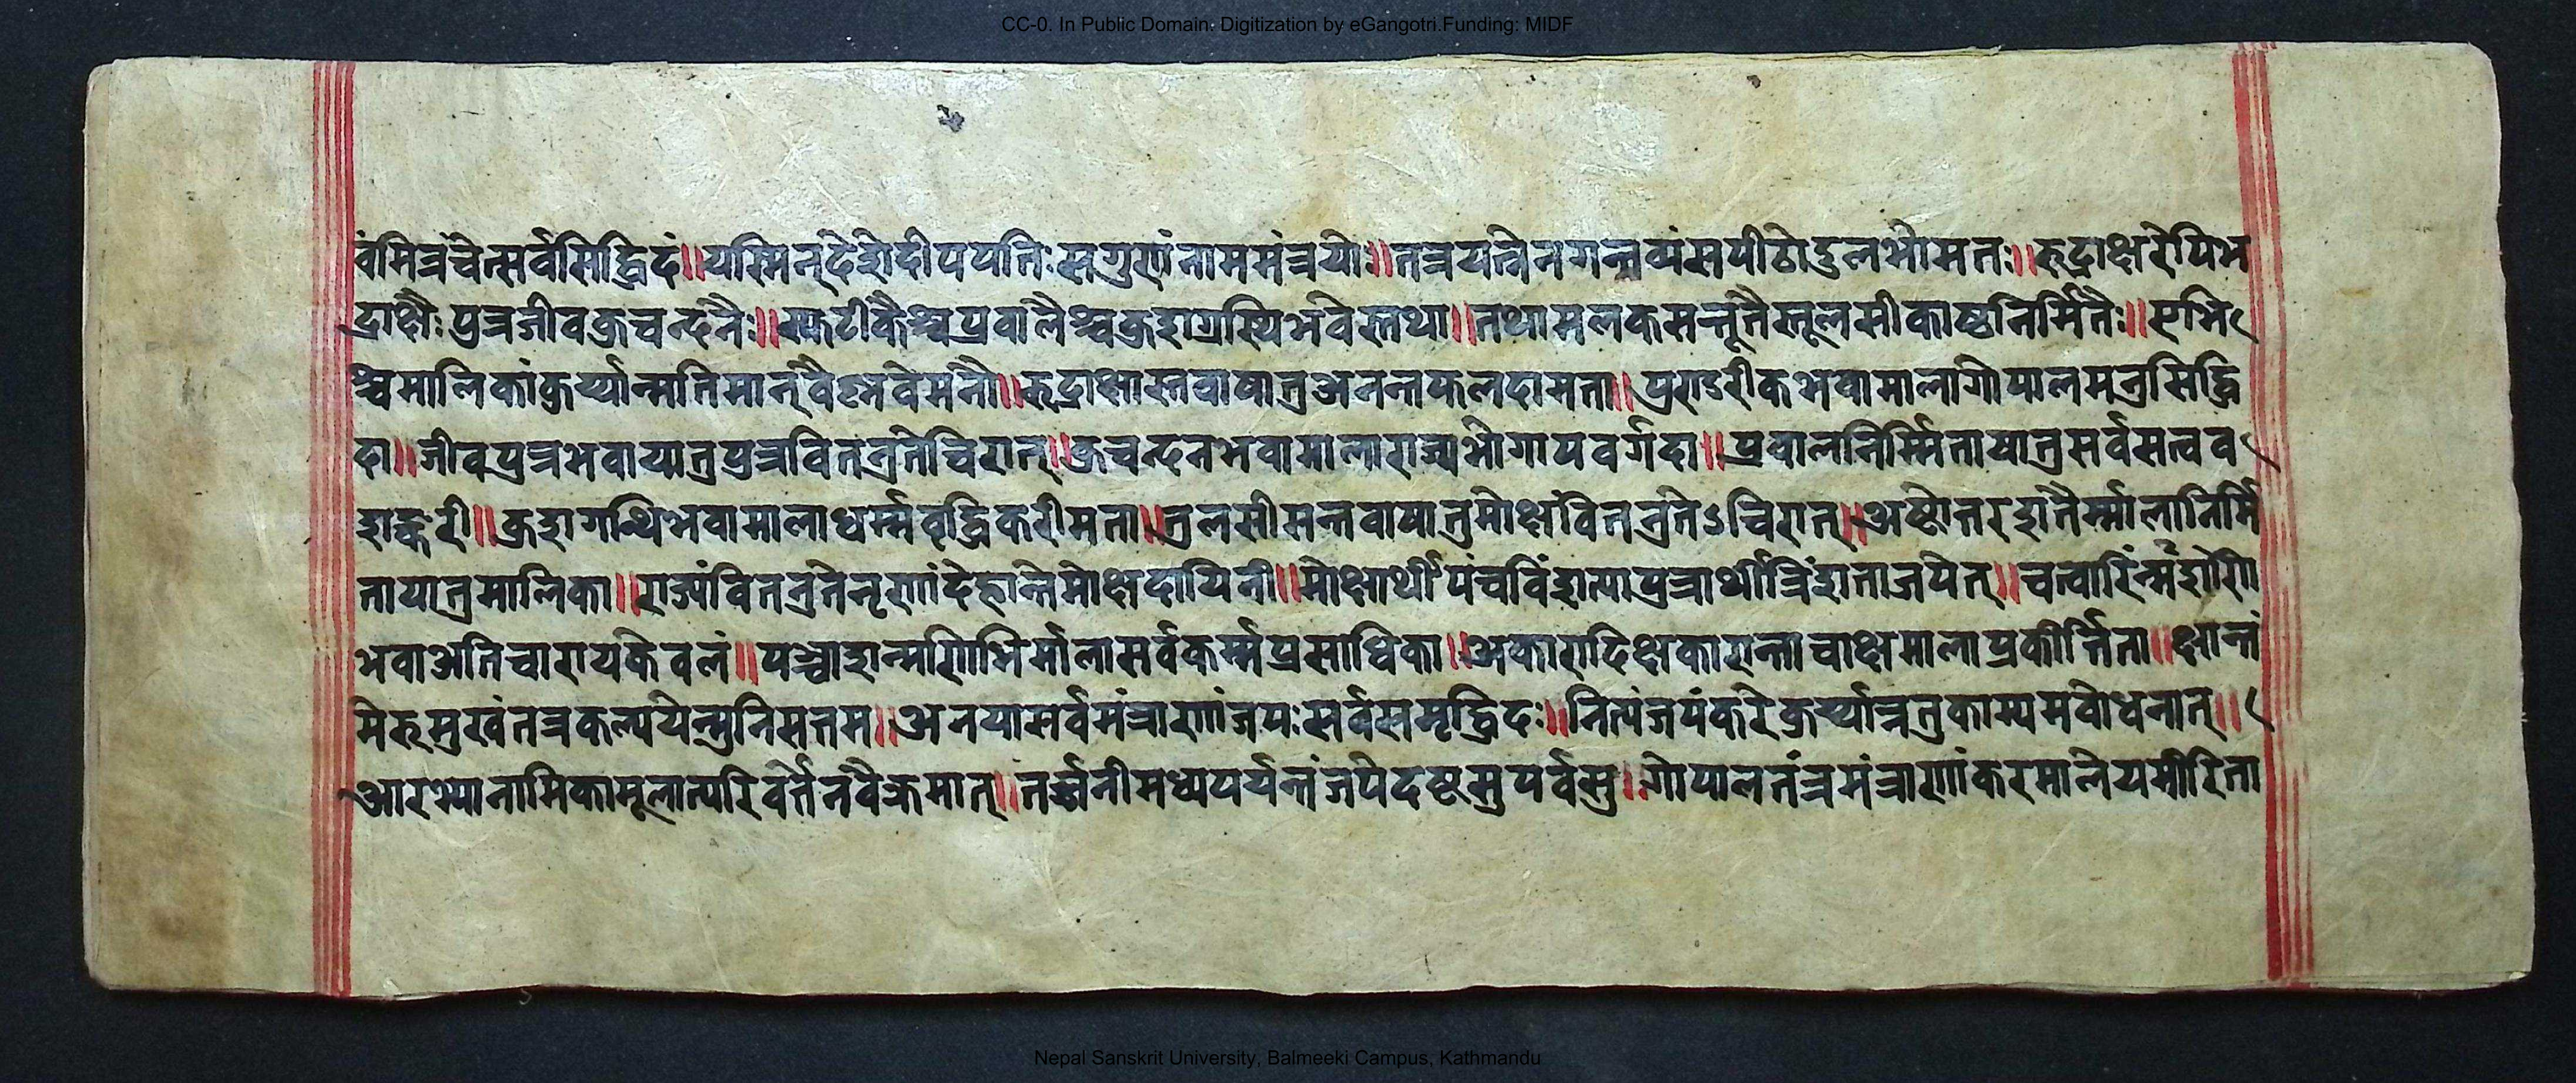 CC-0. In Public Domain. Digitization by eGangotri.Funding: MIDF
वंमित्रंचेत्सर्वसिद्धिदं॥यस्मिन्देशेदीपपतिःसगुरूणांनाममंत्रयोः॥तत्रयत्नेनगन्तव्यंसपीठोदुलभोमतः॥रुद्राक्षरेपिभ
द्राक्षैःपुत्रजीवकुचन्दनैः॥स्फटीकैश्चप्रवालैश्चकुशग्रस्थिभवेस्तथा॥तथामलकसम्भूतैस्तूलसीकाष्ठनिर्मितैः॥एभि
श्चमालिकांकुर्य्यान्मतिमान्वैष्णवेमनौ॥रुद्राक्षास्तवायातुअनन्तफलदामता॥पुण्डरीकभवामालागोपालमनुसिद्धि
दा॥जीवपुत्रभवायातुपुत्रवितनुतेचिरात्॥कुचन्दनभवामालाराज्यभोगापवर्गदा॥प्रवालनिर्म्मितायातुसर्वसत्वव
शङ्करी॥कुशगन्थिभवामालाधर्म्मवृद्धिकरीमता॥तुलसीसम्तवायातुमोक्षंवितनुतेऽचिरात्॥अष्टोत्तरशतैर्म्मालानिर्मि
तायातुमालिका॥राज्यंवितनुतेनृणांदेहान्तेमोक्षदायिनी॥मोक्षार्थीपंचविंशत्यापुत्रार्थीत्रिंशताजपेत्॥चत्वारिंन्मशणि
भवाअतिचारायकेवलं॥पञ्चाशन्मणिभिर्मालासर्वकर्म्मप्रसाधिका॥अकारादिक्षकारान्ताचाक्षमालाप्रकीर्त्तिता॥क्षान्तं
मेरुमुखंतत्रकल्पयेन्मुनिसत्तम॥अनयासर्वमंत्राणांजपःसर्वसमृद्धिदः॥नित्यंजपंकरेकुर्य्यान्नतुकाम्यमवोधनात्॥
आरभ्यानामिकामूलात्परिवर्तेनवैक्रमात्॥तर्ज्जनीमध्यपर्यन्तंजपेदष्टसुपर्वसु॥गोपालतंत्रमंत्राणांकरमालेयमीरिता
Nepal Sanskrit University, Balmeeki Campus, Kathmandu